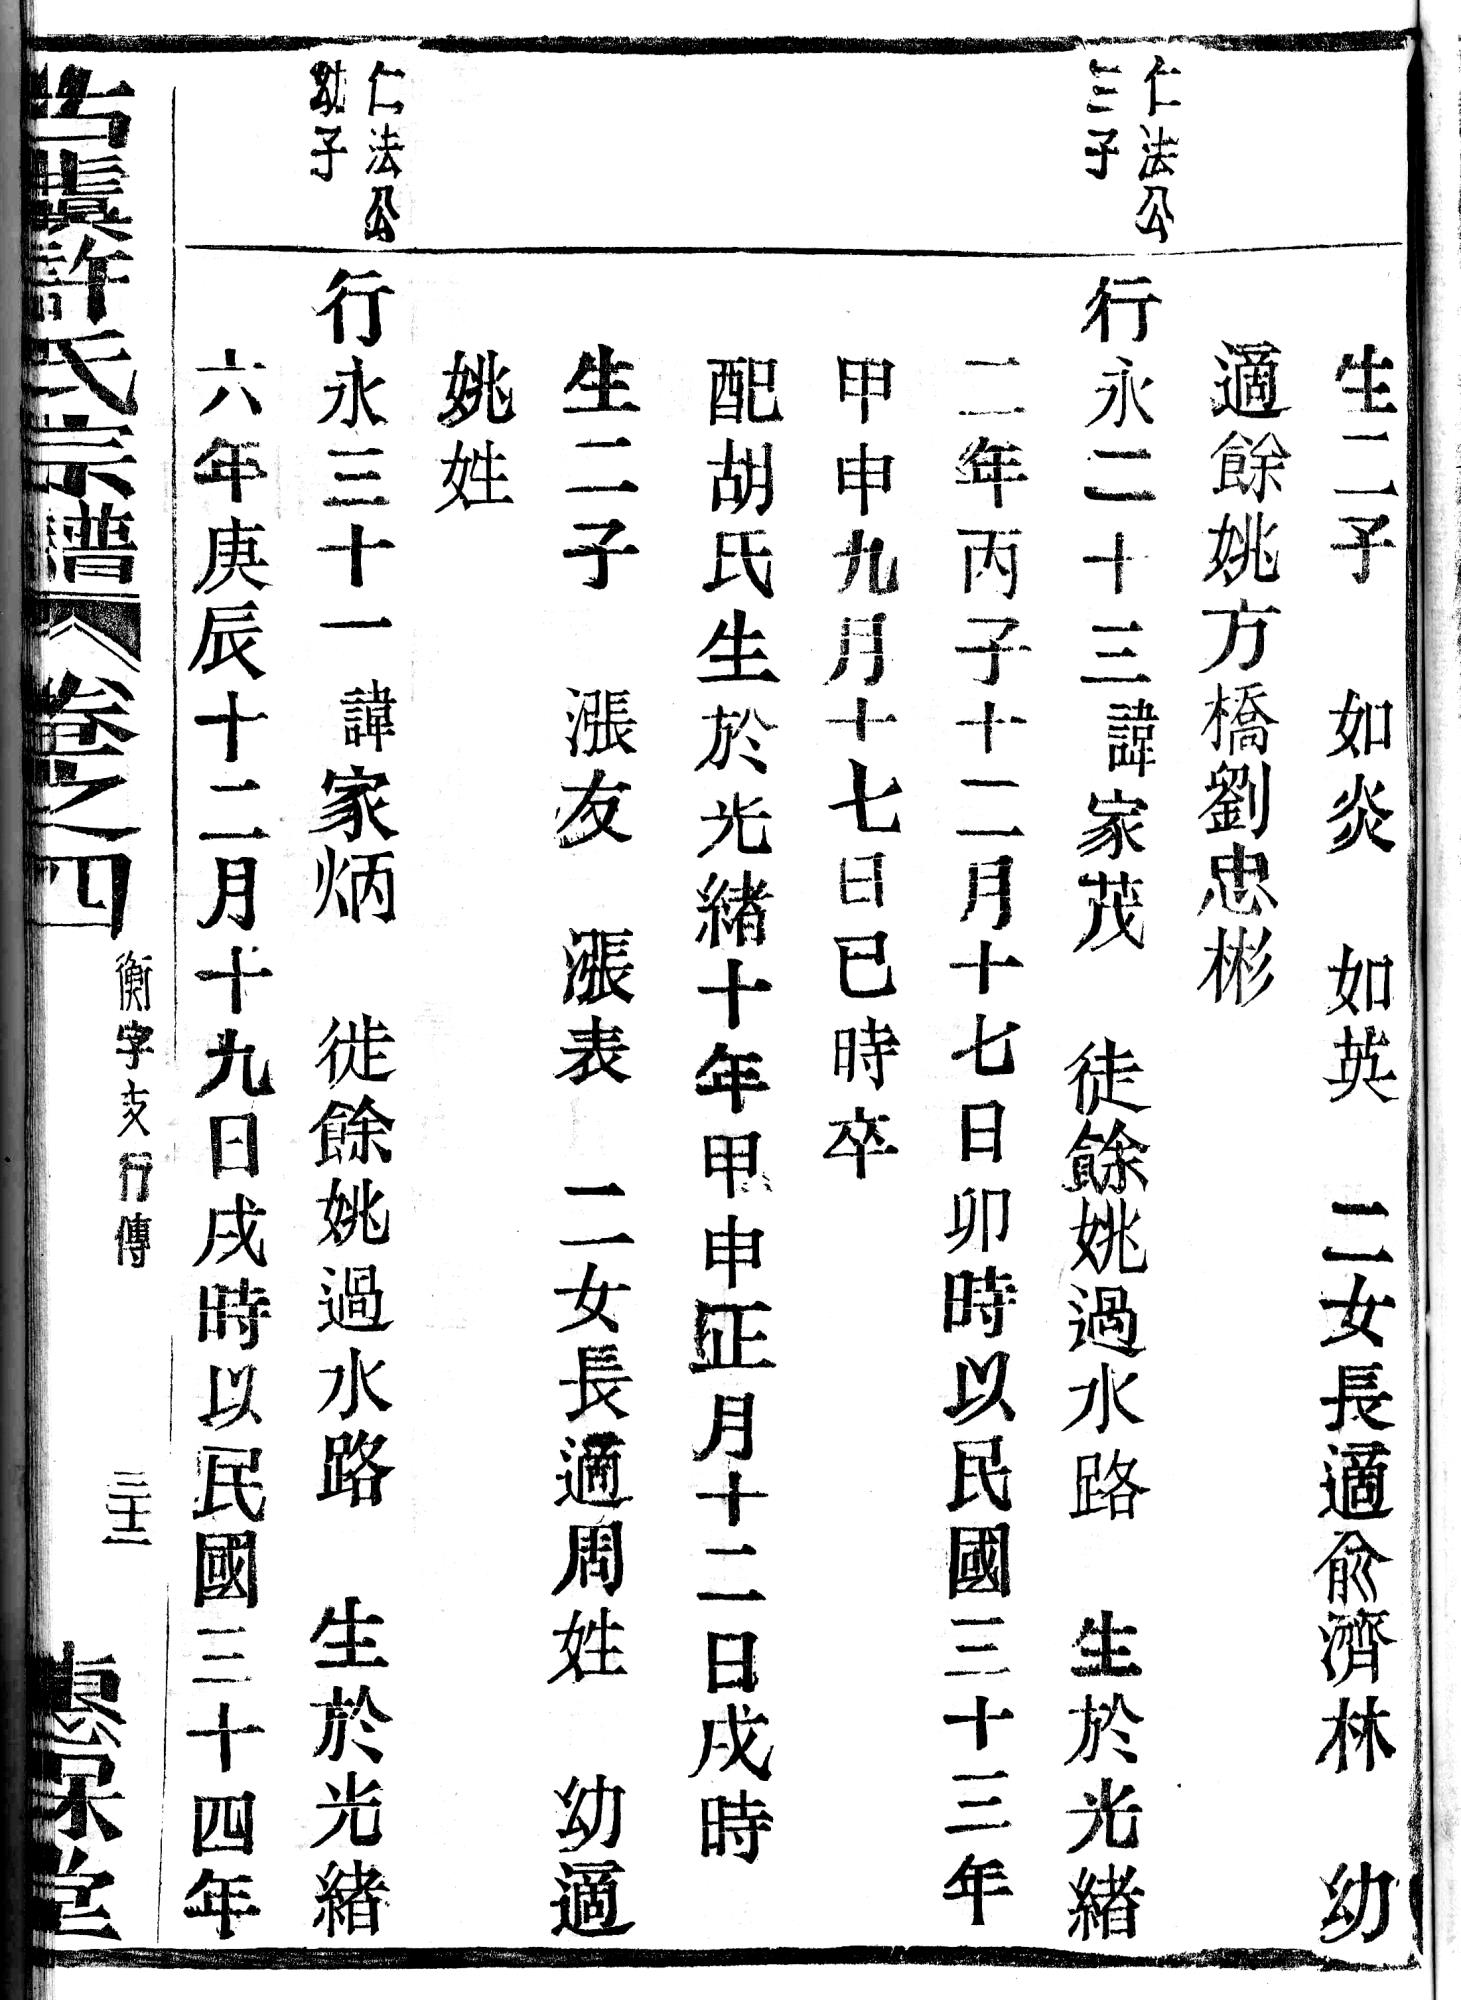 生二子　如炎　如英　二女長適俞濟林　幼
適餘姚方橋劉忠彬
仁法公
三子
行永二十三諱家茂　徙餘姚過水路　生於光緒
二年丙子十二月十七日卯時以民國三十三年
甲申九月十七日巳時卒
配胡氏生於光緒十年甲申正月十二日戌時
生二子　漲友　漲表　二女長適周姓　幼適
姚姓
仁法公
幼子
行永三十一諱家炳　徙餘姚過水路　生於光緒
六年庚辰十二月十九日戌時以民國三十四年
古虞許氏宗譜　卷之四　衡字支行傳　三十三　惠保堂